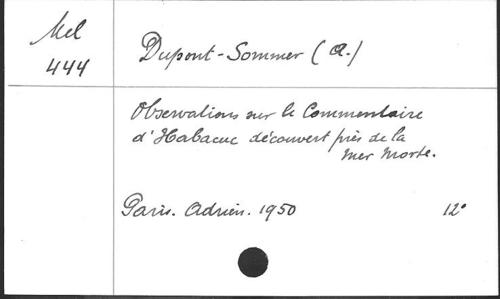 Mel
444
Dupont-Sommer (A.)
Observations sur le Commentaire
d'Habacuc découvert près de la
Mer Morte.
Paris. Adrien. 1950 12°